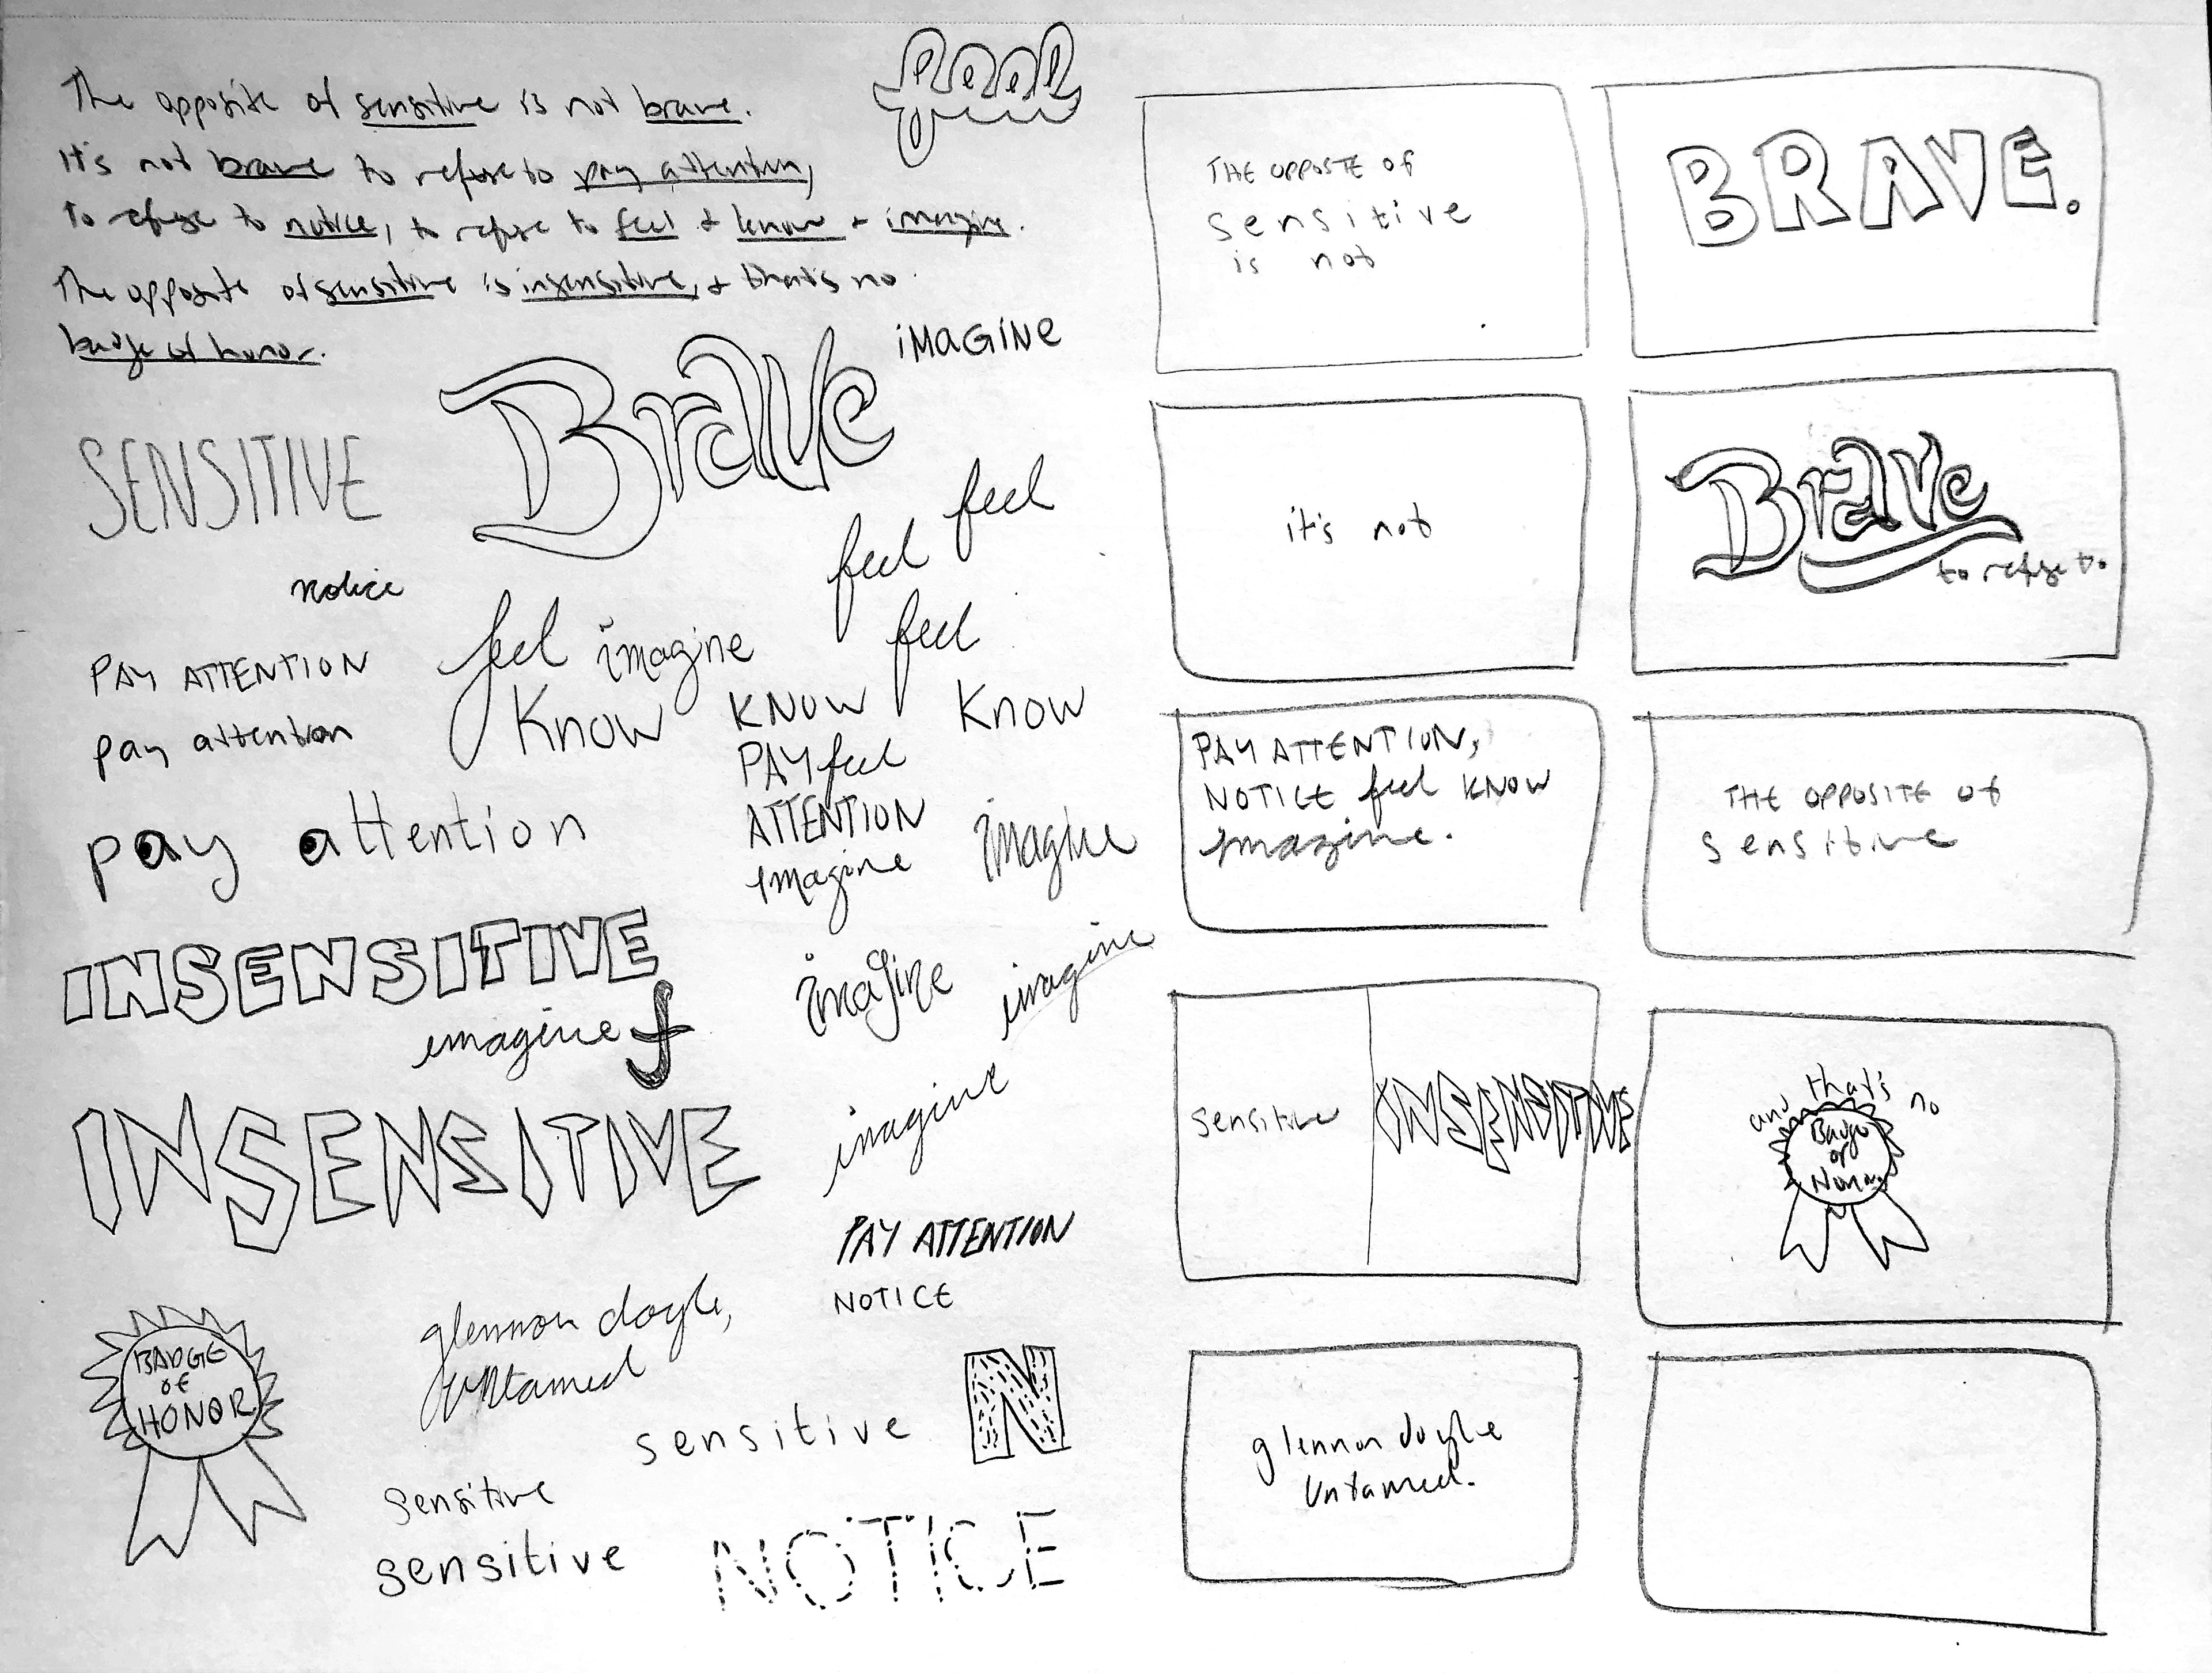 The opposite of sensitive is not brave.
It's not brave to refuse to pay attention,
to refuse to notice, to refuse to feel + know + imagine.
The opposite of sensitive is insensitive, + that's no
badge of honor.
feel
Brave
iMAGINE
SENSITIVE
feel
feel
notice
feel imagine
feel
PAY ATTENTION
pay attention
KNOW
KNOW
KNOW
PAY feel
ATTENTION
imagine
imagine
pay attention
INSENSITIVE
imagine f
imagine
imagine
INSENSITIVE
imagine
PAY ATTENTION
NOTICE
BADGE
OF
HONOR
glennon doyle,
Untamed
N
sensitive
sensitive
sensitive
NOTICE
THE OPPOSTE OF
sensitive
is not
BRAVE.
it's not
Brave
to refuse to
PAY ATTENTION,
NOTICE feel KNOW
imagine.
THE OPPOSITE OF
sensitive
sensitive
INSENSITIVE
and that's no
Badge
of
Honor
glennon doyle
Untamed.